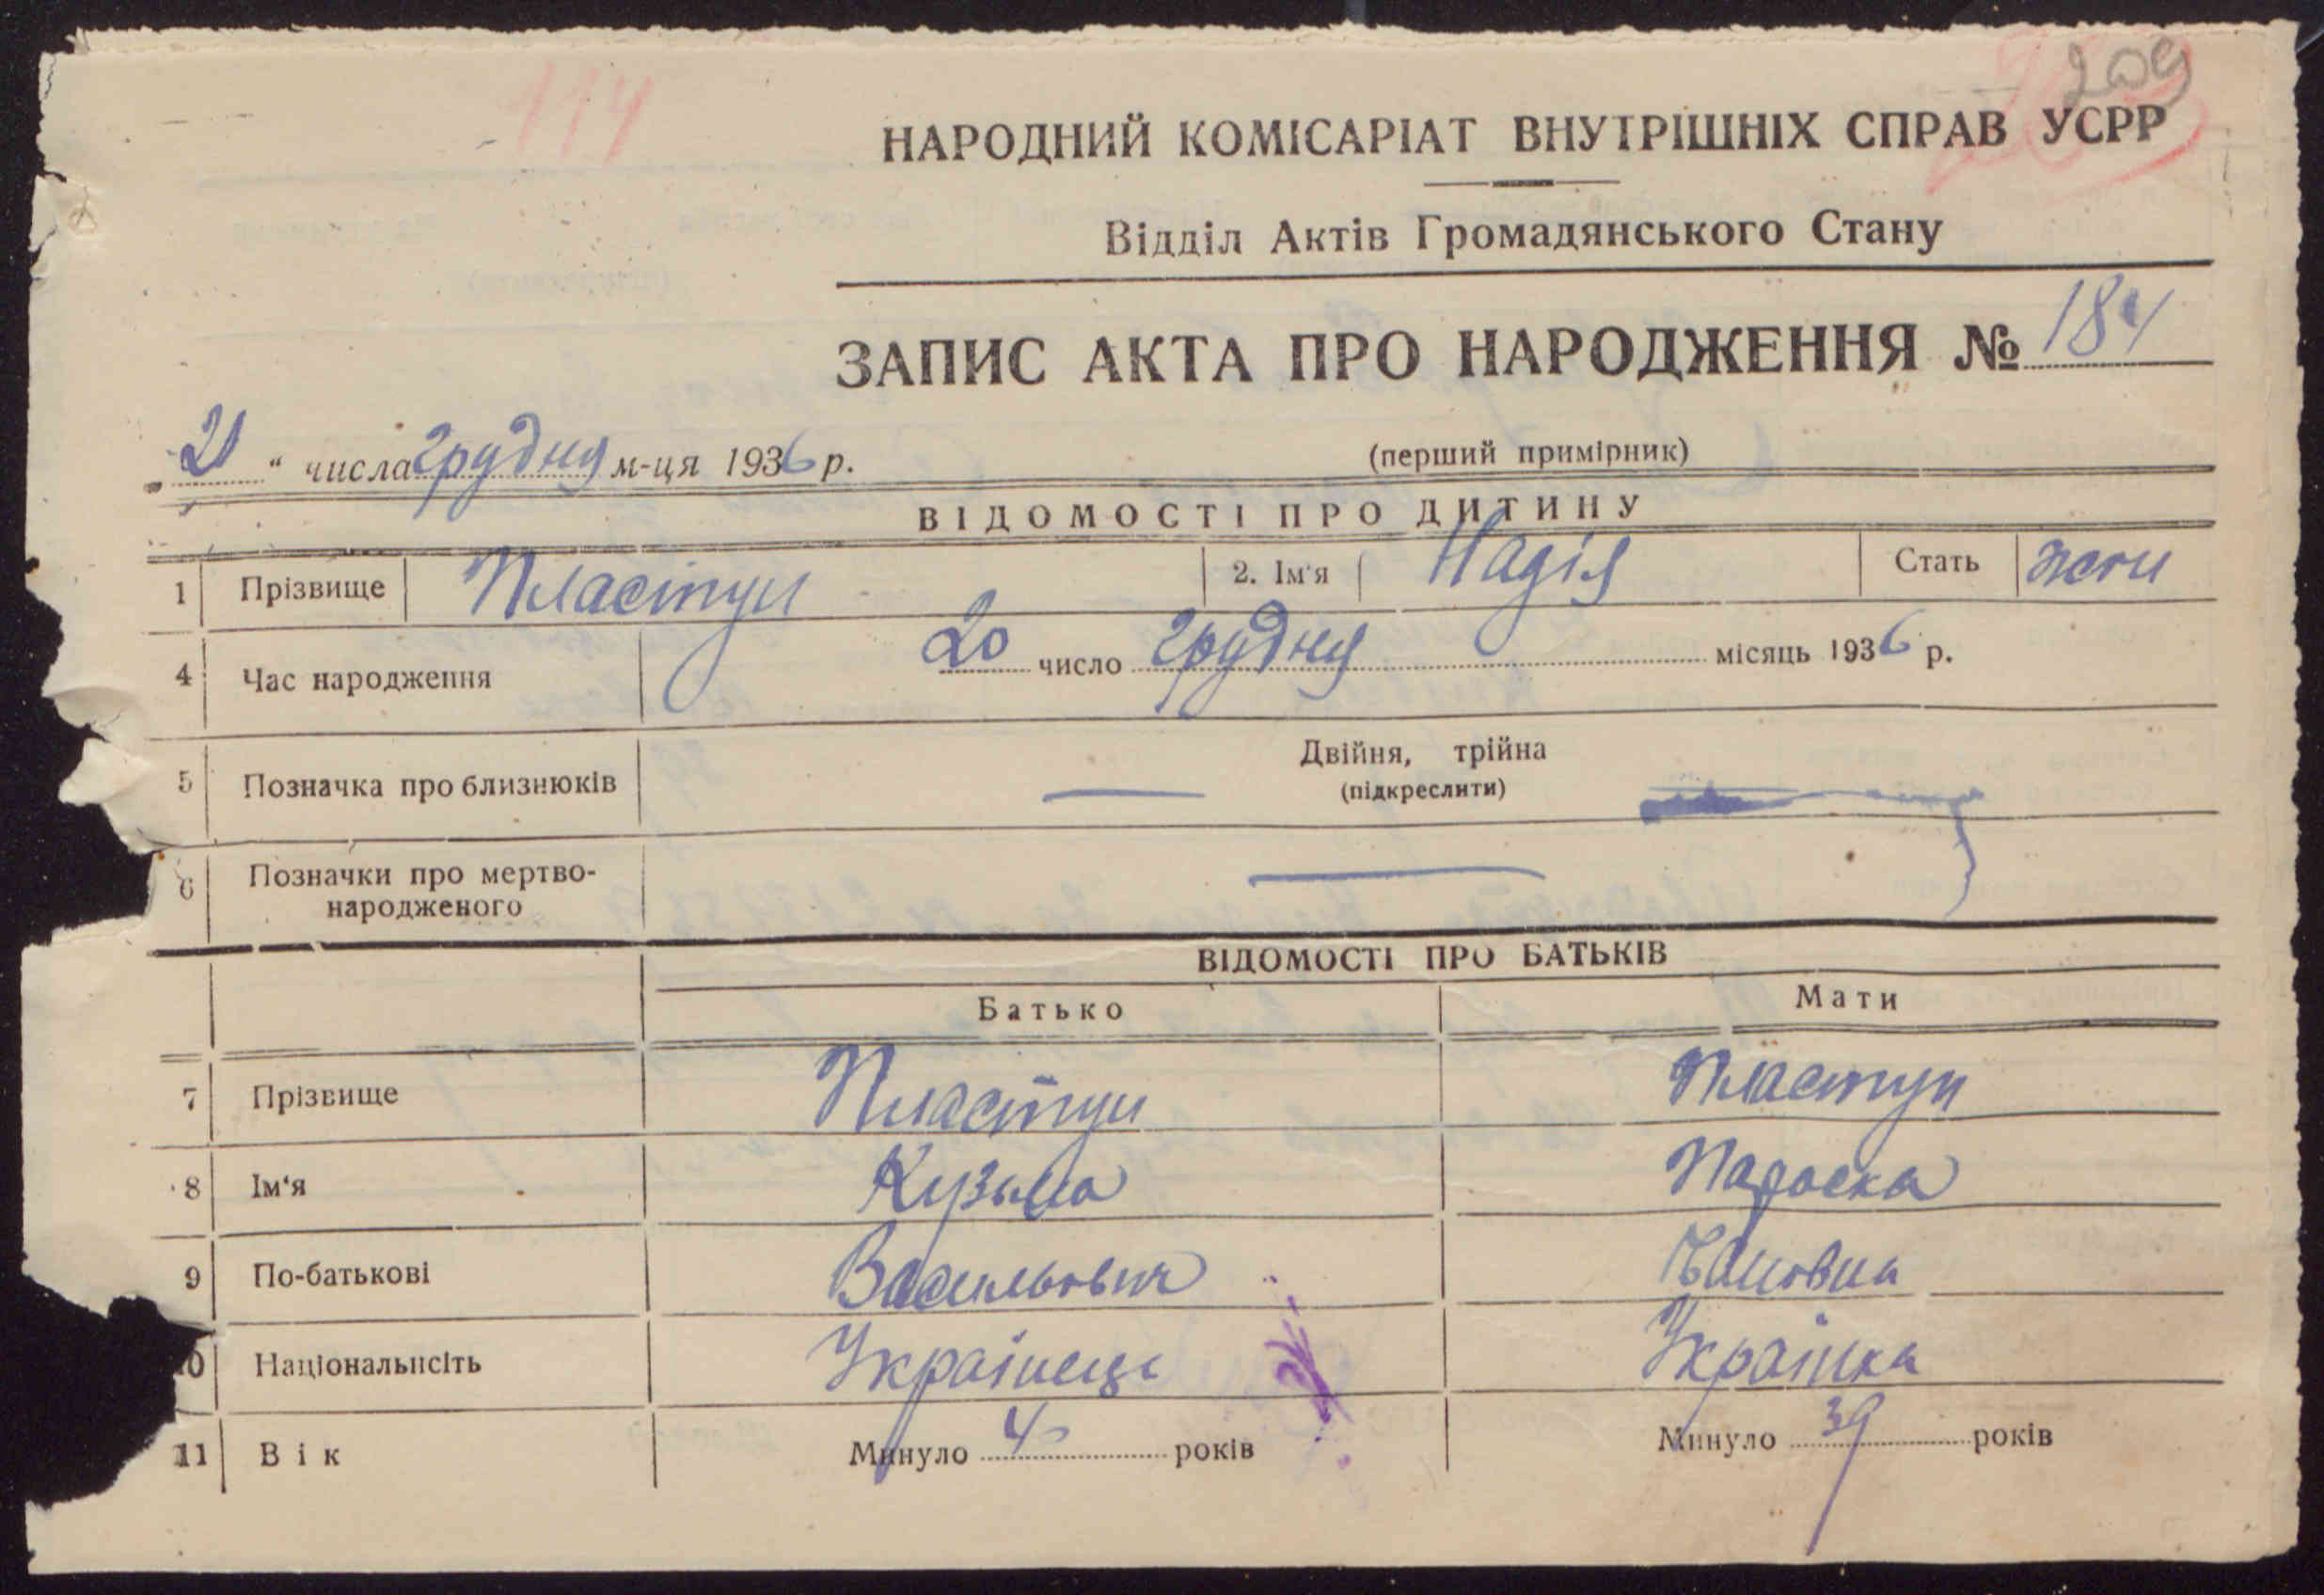 114
209
НАРОДНИЙ КОМІСАРІАТ ВНУТРІШНІХ СПРАВ УСРР
Відділ Актів Громадянського Стану
ЗАПИС АКТА ПРО НАРОДЖЕННЯ № 184
„21“ числа грудня м-ця 1936 р. (перший примірник)
ВІДОМОСТІ ПРО ДИТИНУ
1 Прізвище Пластун 2. Ім'я Надія Стать жін
4 Час народження 20 число грудня місяць 1936 р.
5 Позначка про близнюків Двійня, трійна
(підкреслити)
6 Позначки про мертво-
народженого
ВІДОМОСТІ ПРО БАТЬКІВ
Батько Мати
7 Прізвище Пластун Пластун
8 Ім'я Кузьма Параска
9 По-батькові Васильович
10 Національність Українець Українка
11 Вік Минуло 40 років Минуло 39 років